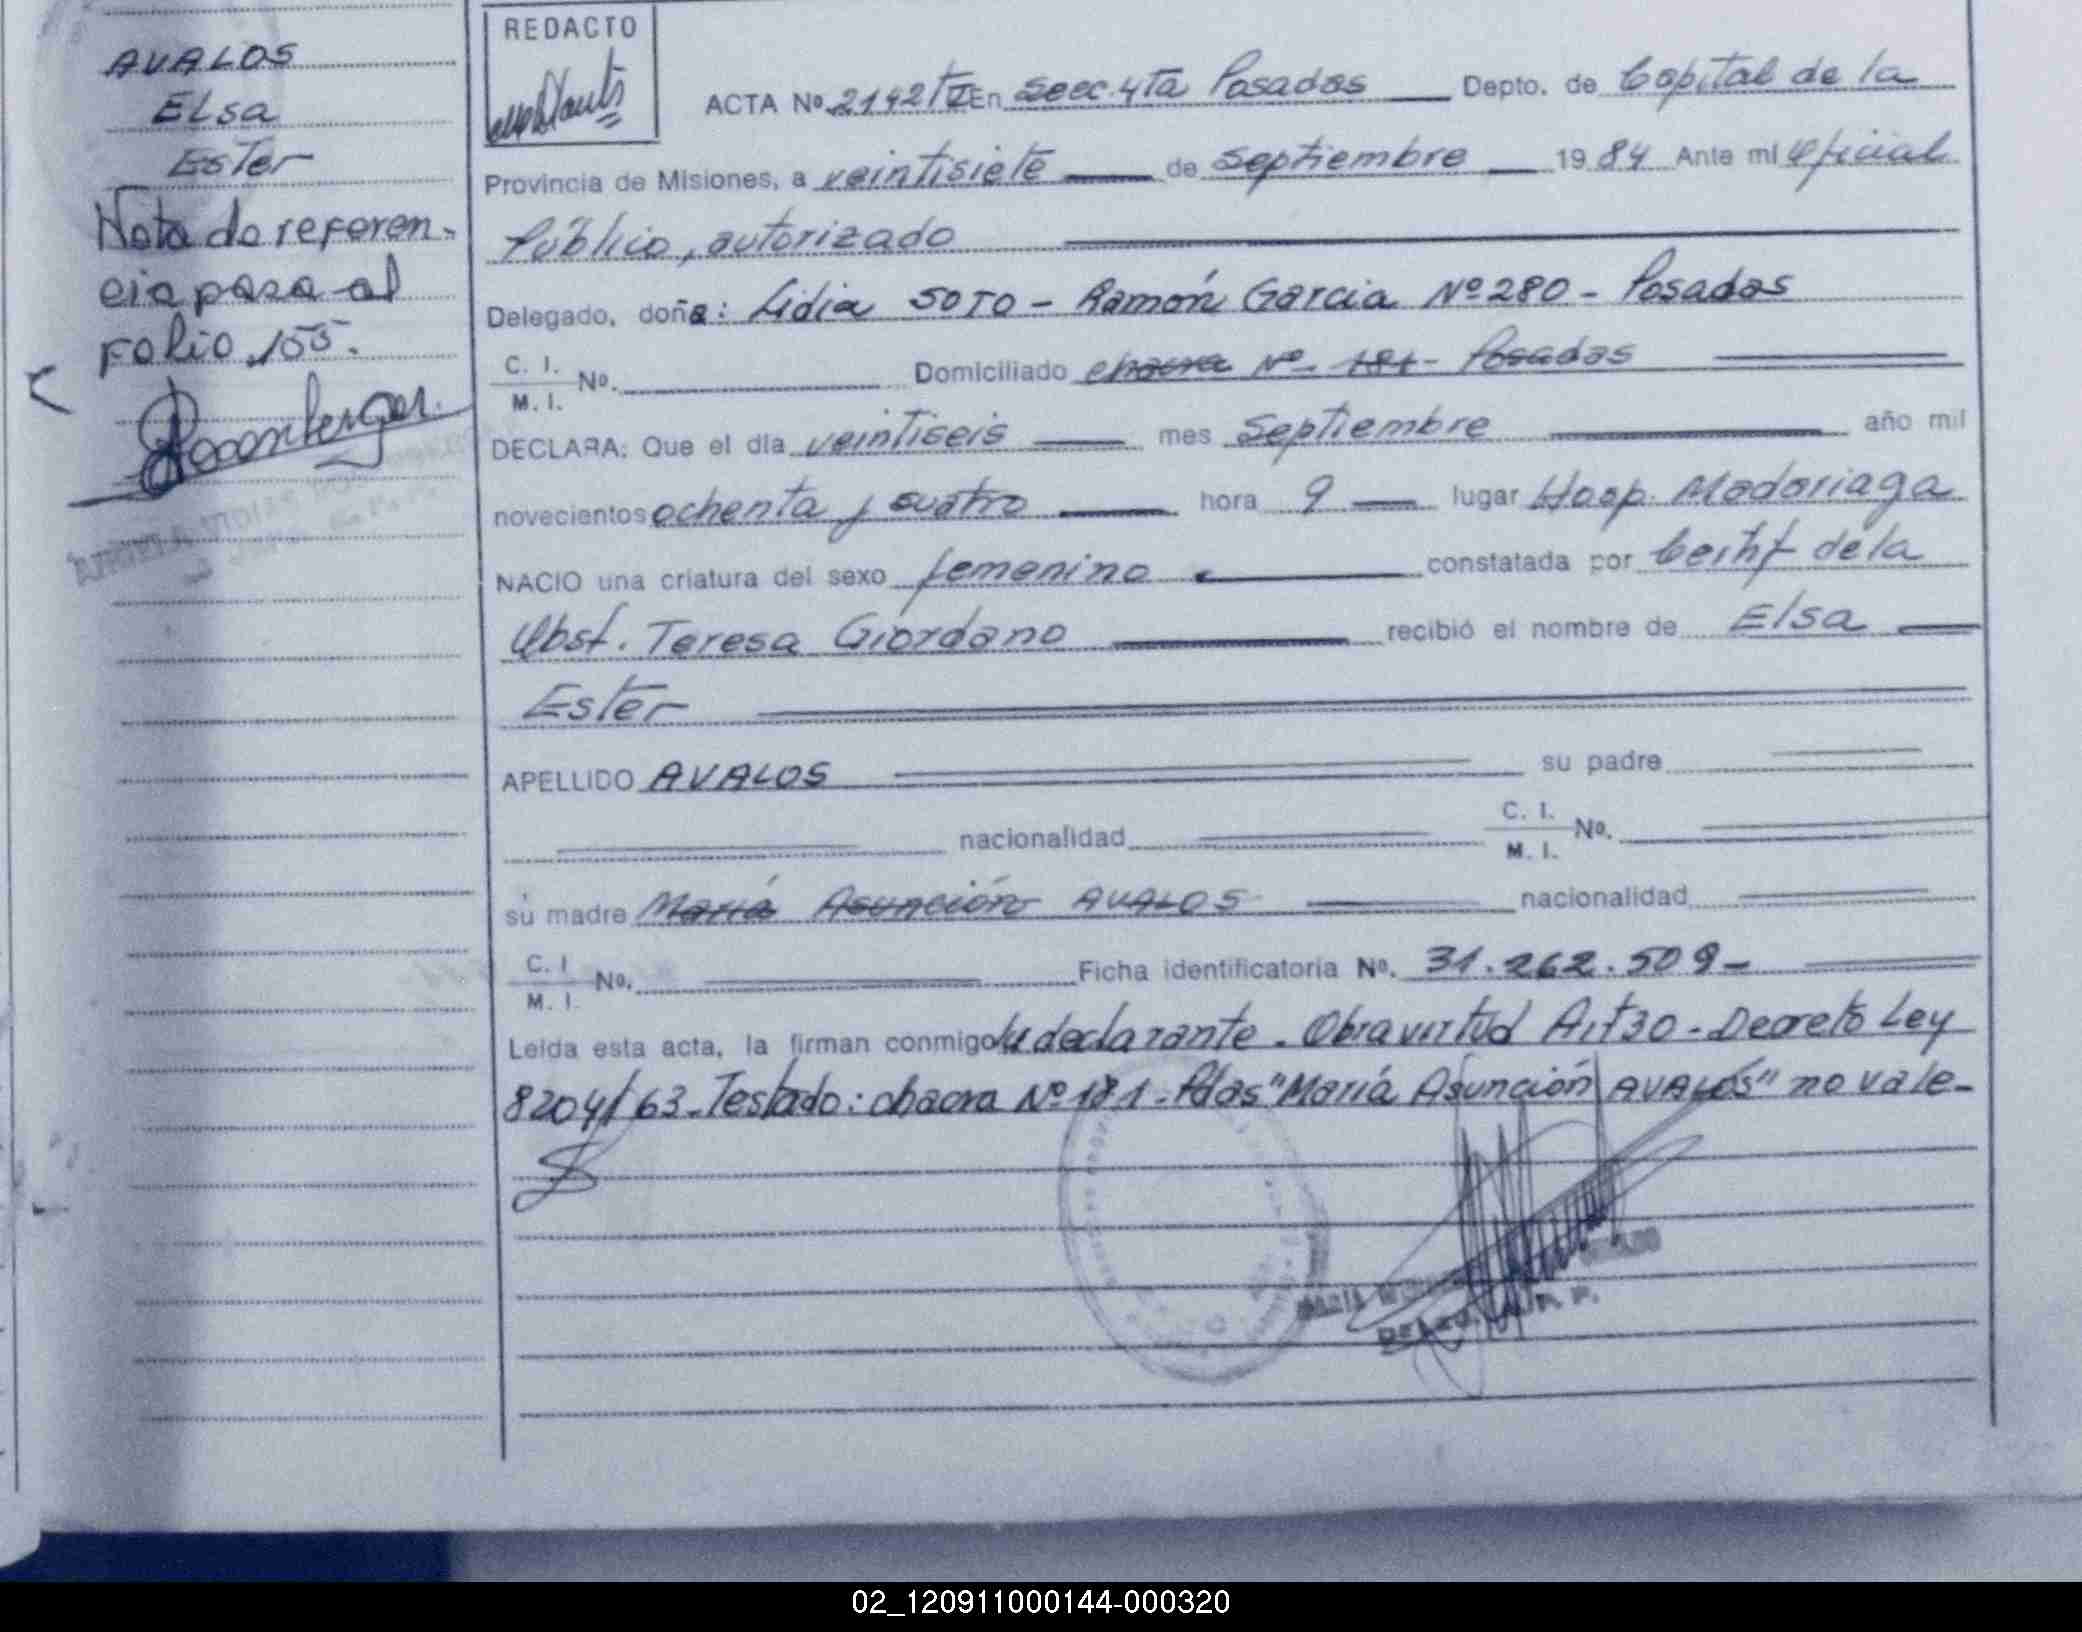 AVALOS
ELsa
Ester
Nota de referen-
cia pasa al
Folio 155.
REDACTO
ACTA Nº 2142 TI En Secc. 4ta Posadas Depto. de Capital de la
Provincia de Misiones, a veintisiete de septiembre 1984 Ante mí Oficial
Público, autorizado
Delegado, doña: Lidia SOTO - Ramón Garcia Nº 280 - Posadas
C. I.
M. I. Nº. Domiciliado chacra Nº - 181 - Posadas
DECLARA: Que el día veintiseis mes septiembre año mil
novecientos ochenta y cuatro hora 9 lugar Hosp. Madariaga
NACIO una criatura del sexo femenino constatada por Certif de la
Obst. Teresa Giordano recibió el nombre de Elsa
Ester
APELLIDO AVALOS su padre
nacionalidad C. I.
M. I. Nº.
su madre María Asunción AVALOS nacionalidad
C. I
M. I. Nº. Ficha identificatoria Nº. 31.262.509-
Leída esta acta, la firman conmigo la declarante. Obra virtud Art 30 - Decreto Ley
8204/63. Testado: chacra Nº 181 - Pdas "María Asunción AVALOS" no vale-
02_120911000144-000320